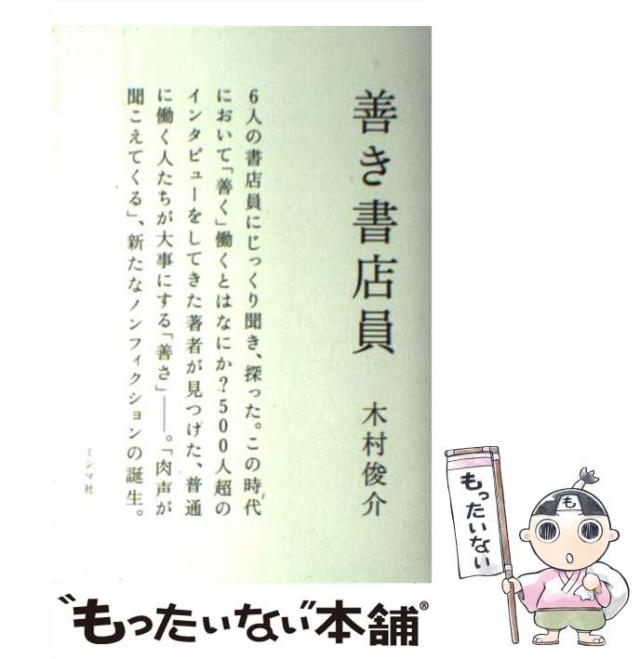 善き書店員
木村俊介
6人の書店員にじっくり聞き、探った。この時代
において「善く」働くとはなにか？500人超の
インタビューをしてきた著者が見つけた、普通
に働く人たちが大事にする「善さ」――。「肉声が
聞こえてくる」、新たなノンフィクションの誕生。
ミシマ社
もったいない
も
“もったいない”本舗®